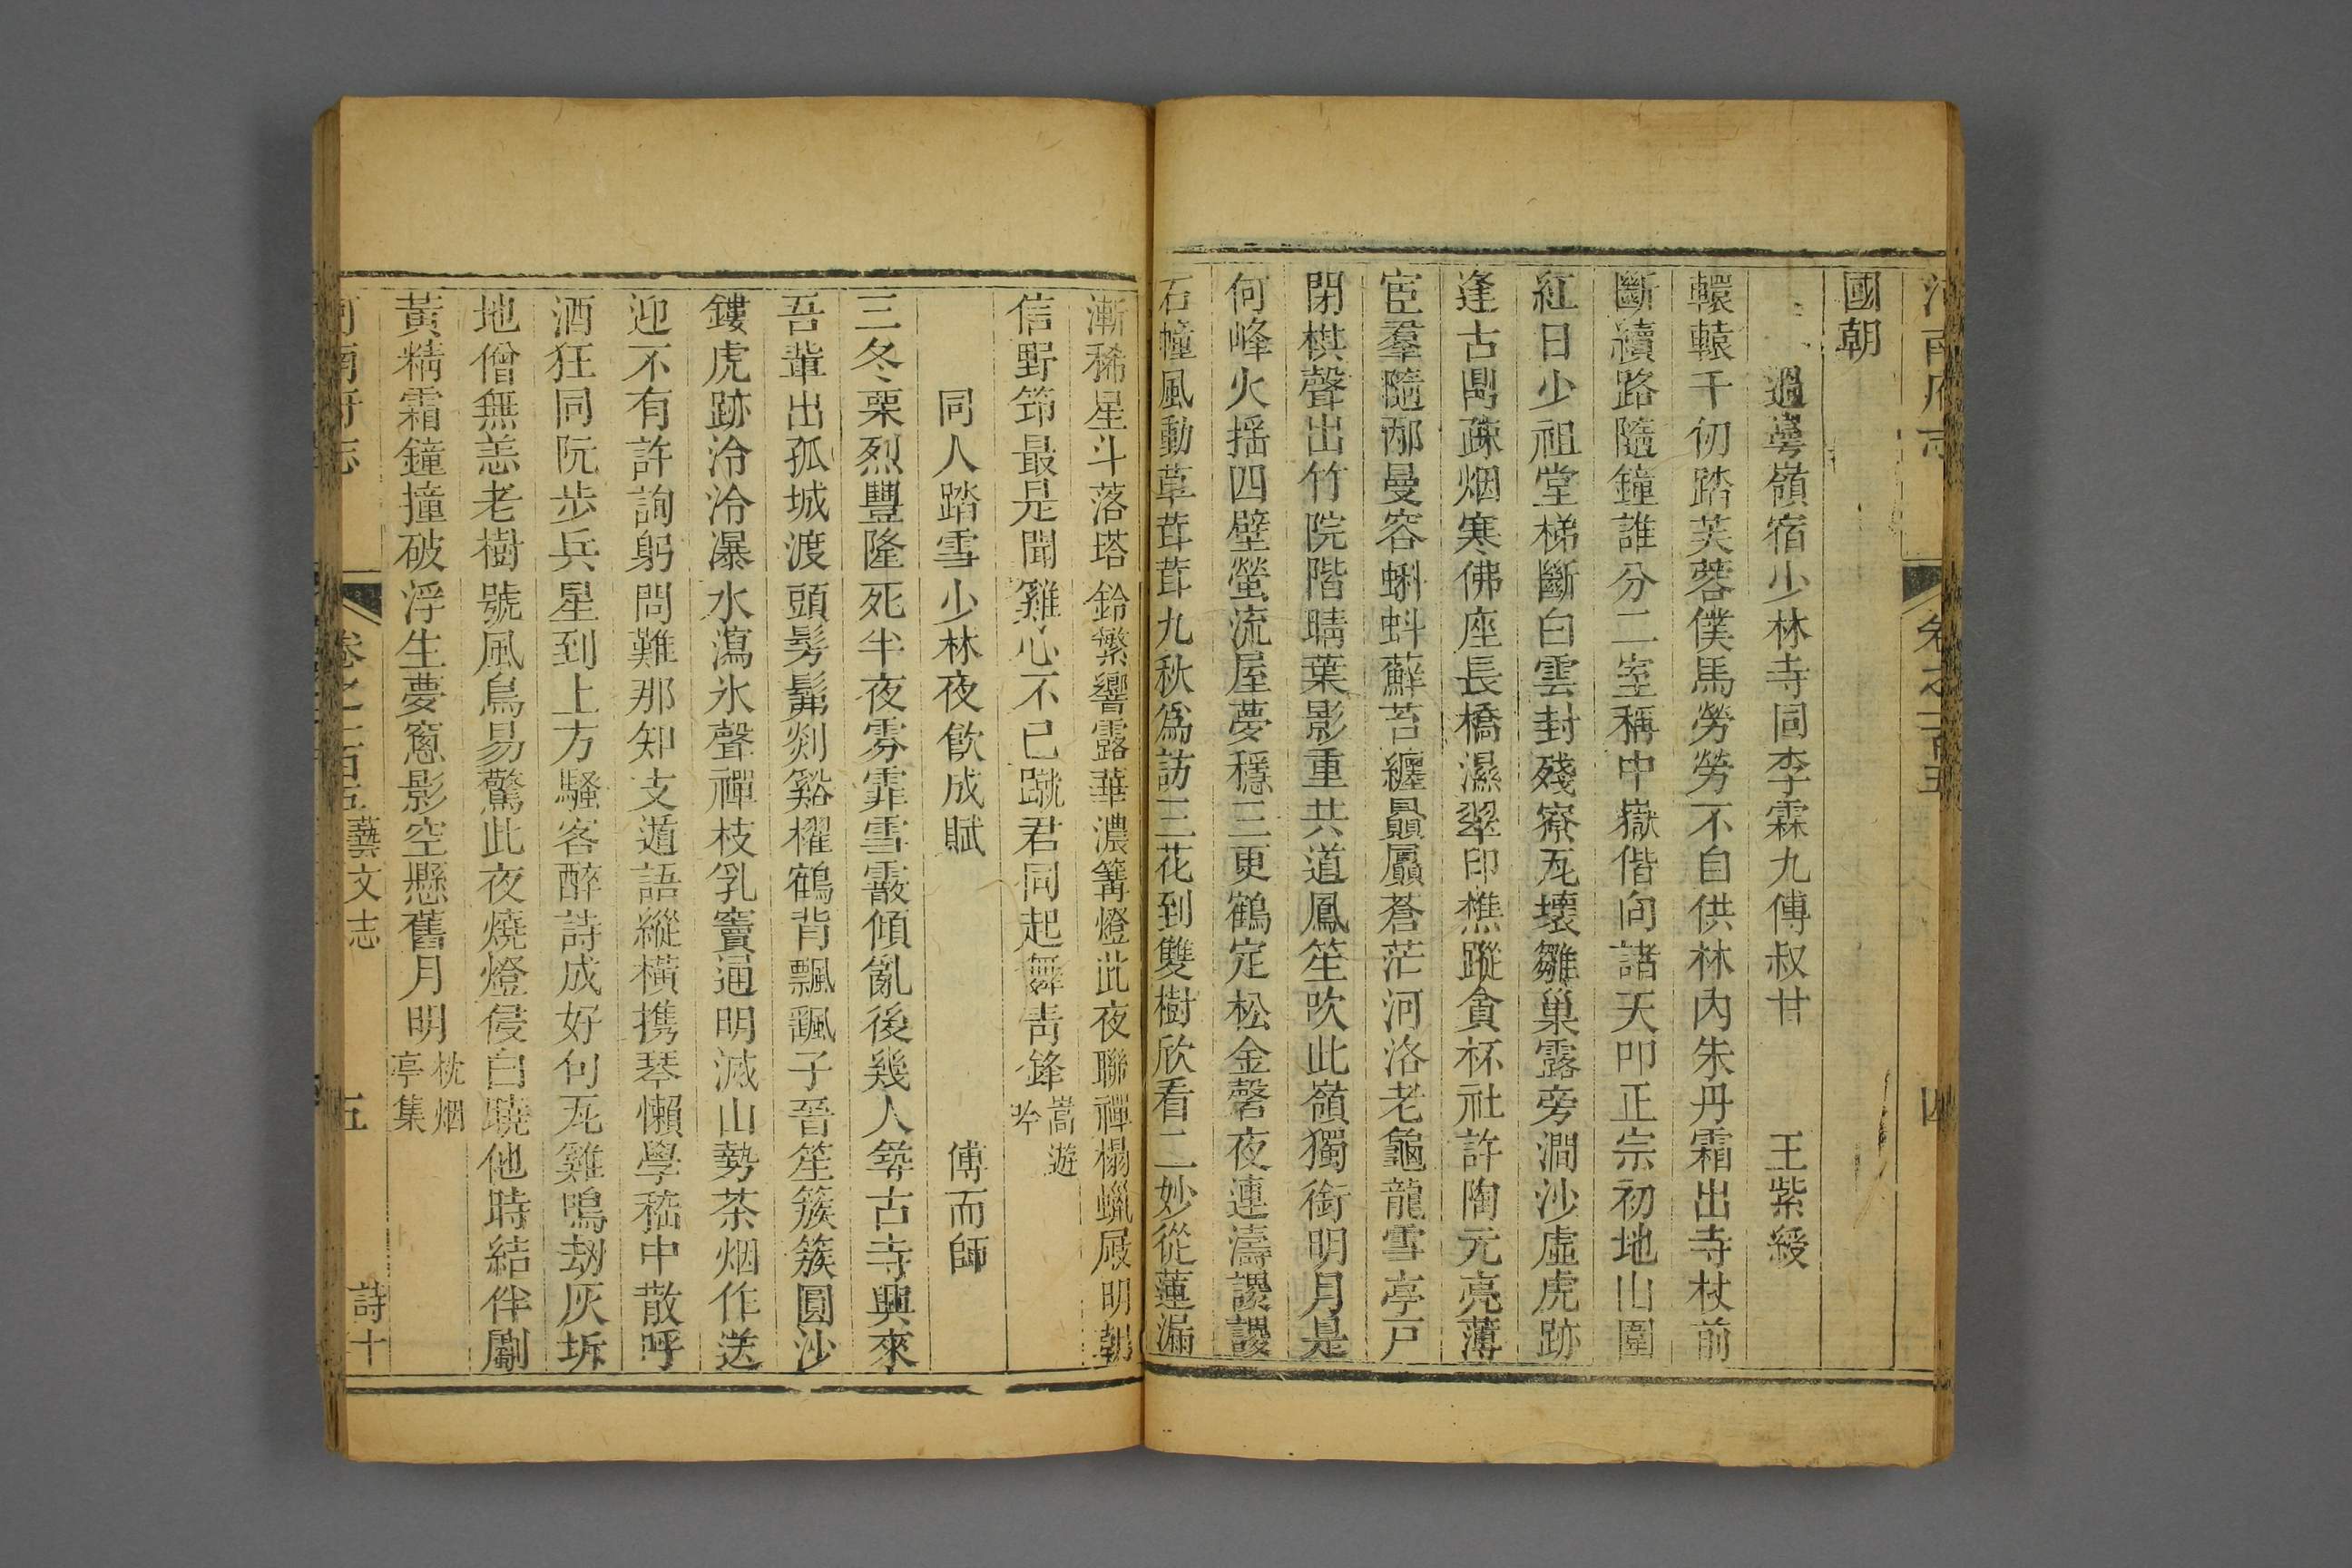 國朝
過蕚嶺宿少林寺同李霖九傅叔甘 王紫綬
轘轅千仞踏芙蓉僕馬勞勞不自供林內朱丹霜出寺杖前
斷續路隨鐘誰分二室稱中嶽偕向諸天叩正宗初地山圍
紅日少祖堂梯斷白雲封殘寮瓦壞雛巢露旁澗沙虛虎跡
逢古鼎疎烟寒佛座長橋濕翠印樵蹤貪杯社許陶元亮薄
宦羣隨邴曼容蝌蚪蘚苔纏贔屭蒼茫河洛老龜龍雪亭戸
閉棋聲出竹院階晴葉影重共道鳳笙吹此嶺獨銜明月是
何峰火揺四壁螢流屋夢穩三更鶴定松金磬夜連濤謖謖
石幢風動草茸茸九秋爲訪三花到雙樹欣看二妙從蓮漏
漸稀星斗落塔鈴繁響露華濃篝燈此夜聯禪榻蠟屐明朝
信野笻最是聞雞心不已蹴君同起舞靑鋒 嵩遊吟
同人踏雪少林夜飮成賦 傅而師
三冬栗烈豐隆死半夜雰霏雪霰傾亂後幾人尋古寺興來
吾輩出孤城渡頭髣髴剡谿櫂鶴背飄飄子晉笙簇簇圓沙
鏤虎跡泠泠瀑水瀉氷聲禪枝乳竇通明滅山勢茶烟作送
迎不有許詢躬問難那知支遁語縱橫携琴懶學嵇中散呼
酒狂同阮步兵星到上方騷客醉詩成好句瓦雞鳴劫灰坼
地僧無恙老樹號風鳥易驚此夜燒燈侵白曉他時結伴劚
黃精霜鐘撞破浮生夢窻影空懸舊月明 枕烟亭集
卷之一百五 藝文志 五 詩十